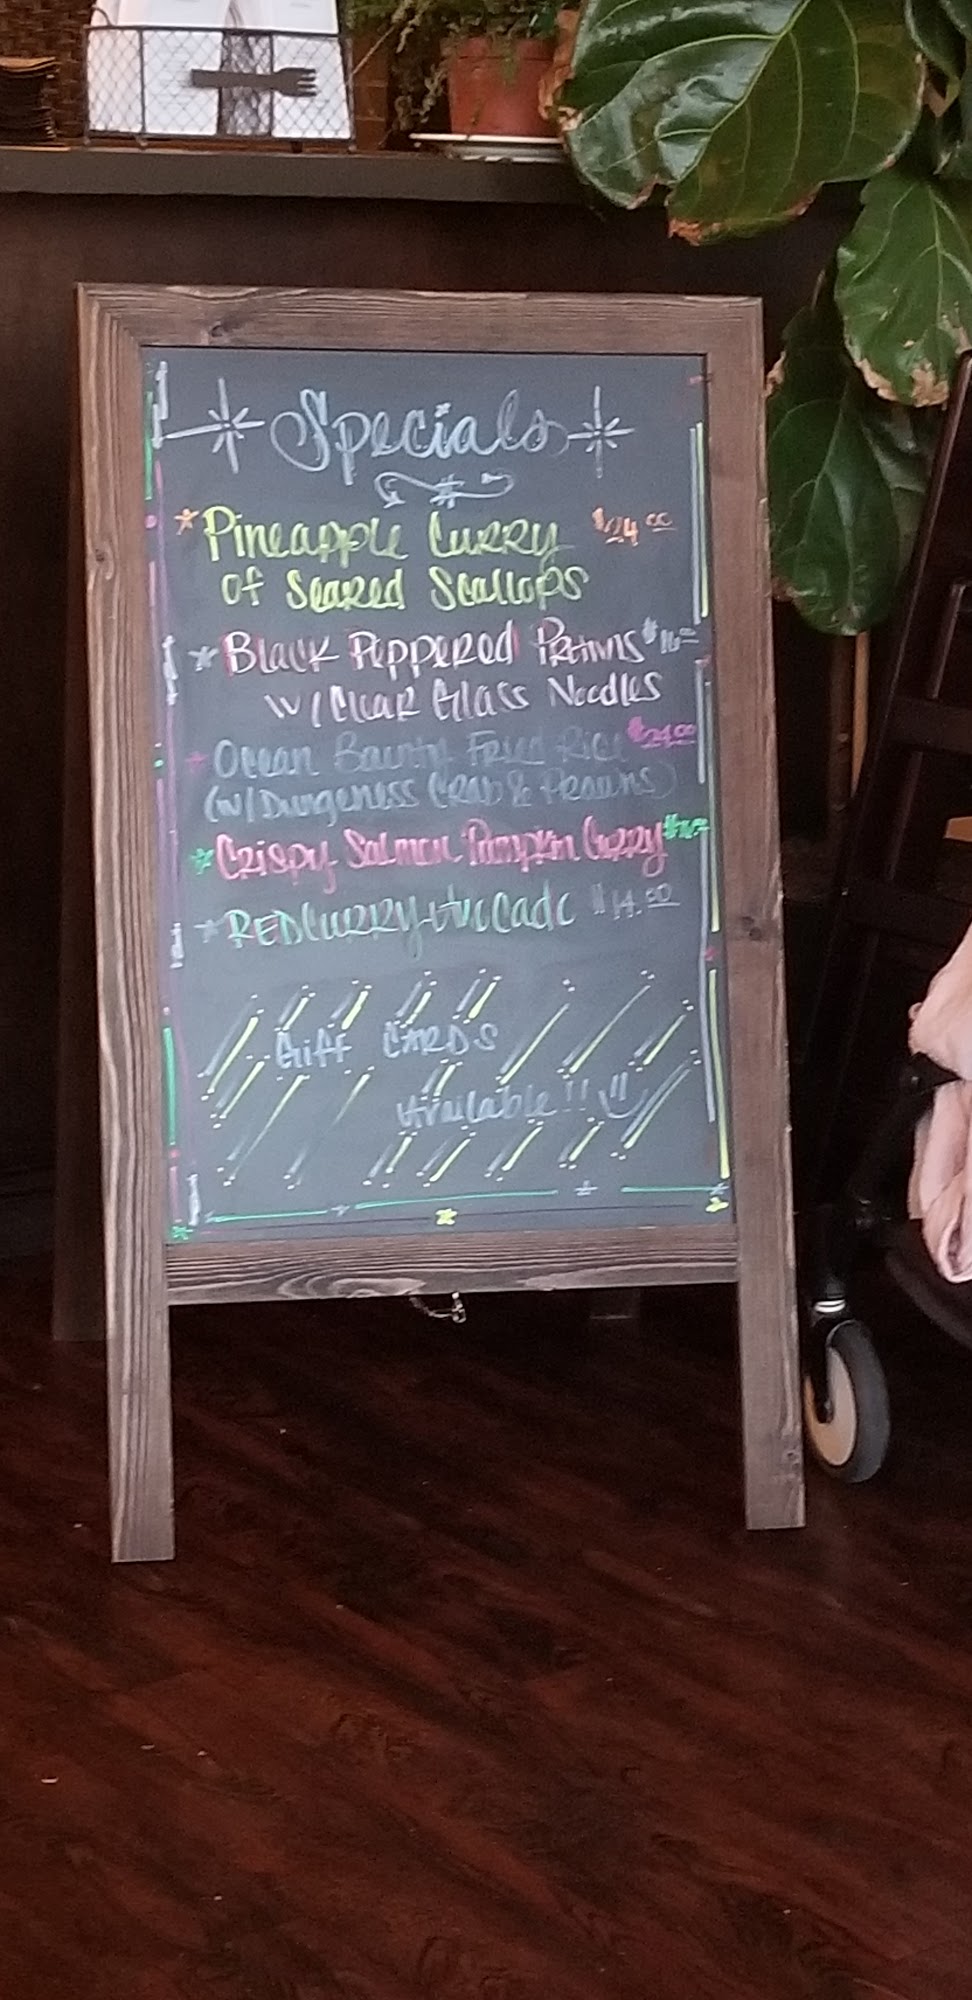 Specials
Pineapple Curry $24.00
of Seared Scallops
Black Peppered Prawns $16.00
w/ Clear Glass Noodles
Ocean Bounty Fried Rice $24.00
(w/ Dungeness Crab & Prawns)
Crispy Salmon Pumpkin Curry
Red Curry Avocado $14.00
Gift Cards
Available!!